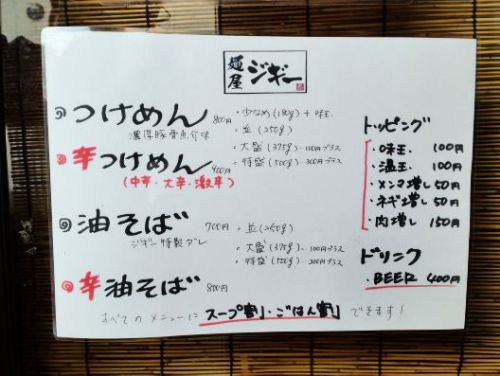 麺屋 ジギー
つけめん 800円
濃厚豚骨魚介味
・少なめ(180g)+味玉
・並(250g)
・大盛(375g)-100円プラス
・特盛(500g)-300円プラス
辛つけめん 900円
(中辛・大辛・激辛)
油そば 700円
ジギー特製ダレ
・並(250g)
・大盛(375g)-100円プラス
・特盛(500g)-200円プラス
辛油そば 800円
トッピング
・味玉 100円
・温玉 100円
・メンマ増し 50円
・ネギ増し 50円
・肉増し 150円
ドリンク
・BEER 400円
すべてのメニューにスープ割り・ごはん割できます!